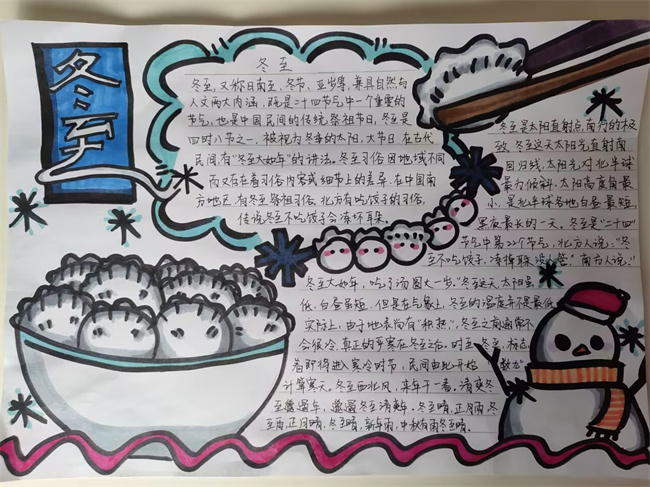 冬至
冬至
冬至,又称日南至、冬节、亚岁等,兼具自然与
人文两大内涵,既是二十四节气中一个重要的
节气,也是中国民间的传统祭祖节日,冬至是
四时八节之一,被视为冬季的大节日,在古代
民间有“冬至大如年”的讲法。冬至习俗因地域不同
而又存在着习俗内容或细节上的差异.在中国南
方地区,有冬至祭祖习俗,北方有吃饺子的习俗,
传说冬至不吃饺子会冻坏耳朵。
冬至是太阳直射点南行的极
致,冬至这天太阳光直射南
回归线,太阳光对北半球
最为倾斜,太阳高度角最
小,是北半球各地白昼最短,
黑夜最长的一天,冬至是“二十四”
节气中第22个节气,北方人说:“冬
至不吃饺子,冻掉耳朵没人管”南方人说:“
冬至大如年,吃了汤圆大一岁.“冬至这天,太阳虽
低、白昼虽短,但是在气象上,冬至的温度并不是最低,
实际上,由于地表尚有“积热”,冬至之前通常不
会很冷,真正的寒在冬至之后.时至冬至,标志
着即将进入寒冷时节,民间由此开始“数九”
计算寒天.冬至西北风,来年干一春.清爽冬
至邋遢年,邋遢冬至清爽年.冬至晴,正月雨,冬
至雨,正月晴.冬至晴,新年雨,中秋有雨冬至晴.